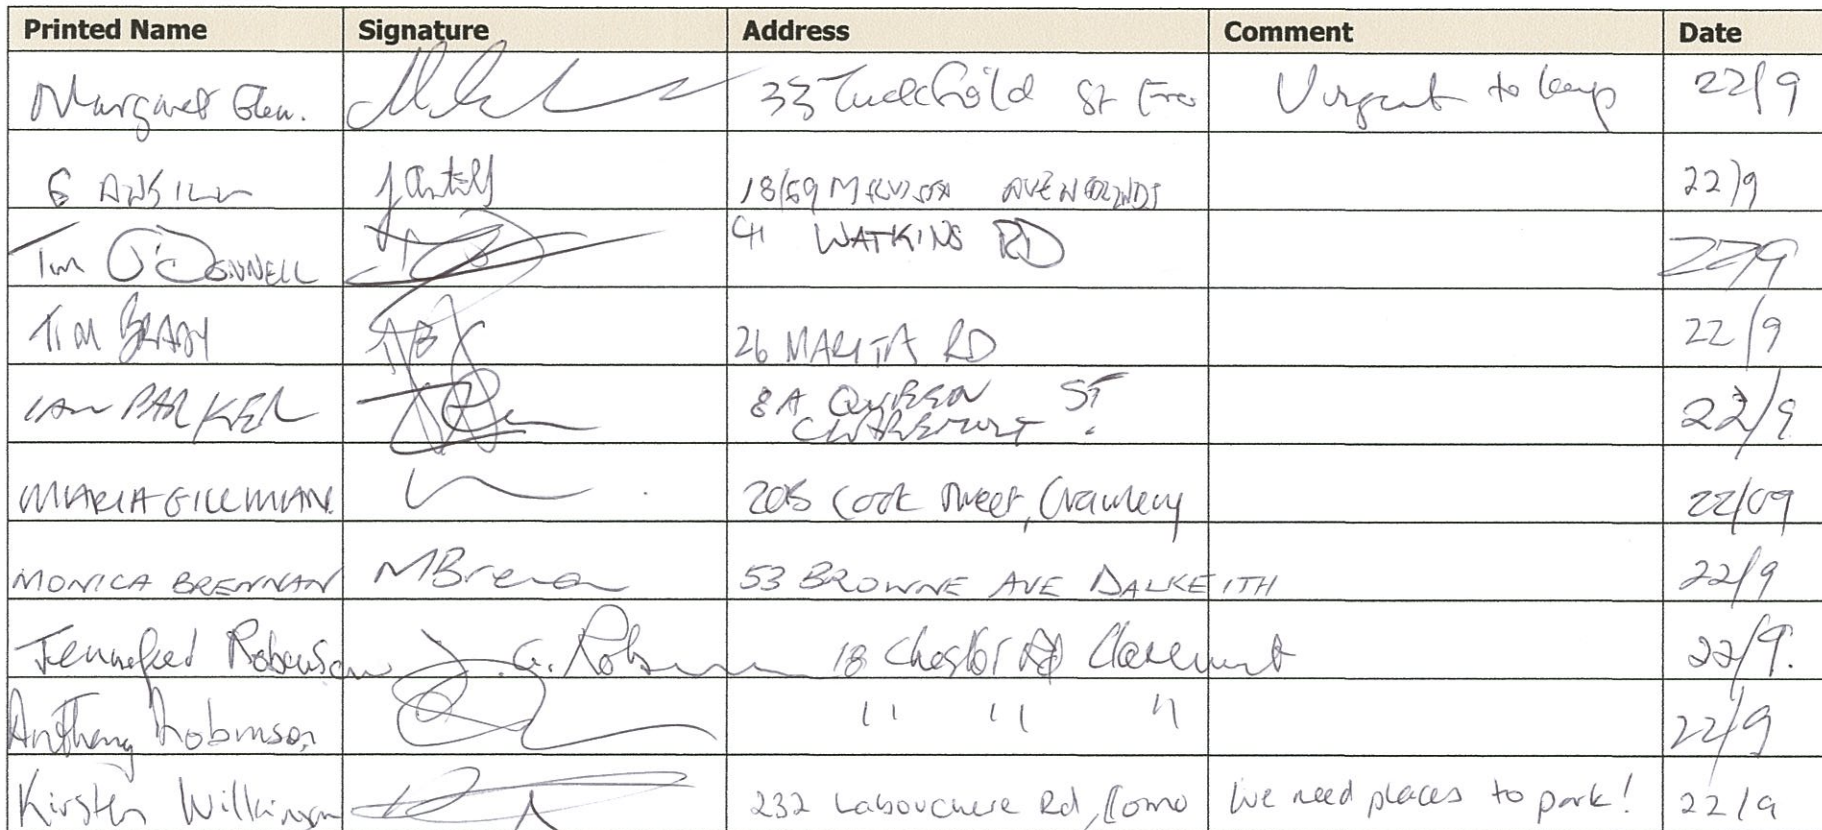 Printed Name Signature Address Comment Date
Margaret Glen. 33 St Fre Urgent to keep 22/9
G 18/59 AVE NEDLANDS 22/9
Tim O'DONNELL 41 WATKINS RD 22/9
TIM BRADY 26 MARITA RD 22/9
IAN PARKER 8A QUEEN ST
CLAREMONT. 22/9
MARIA GILLMAN 205 Cook Street, Crawley 22/09
MONICA BRENNAN MBrennan 53 BROWNE AVE DALKEITH 22/9
Robinson J. G. Robinson 18 Chester Rd Claremont 22/9.
Anthony Robinson 11 11 11 22/9
Kirsten Wilkinson 232 Labouchere Rd, Como We need places to park! 22/9